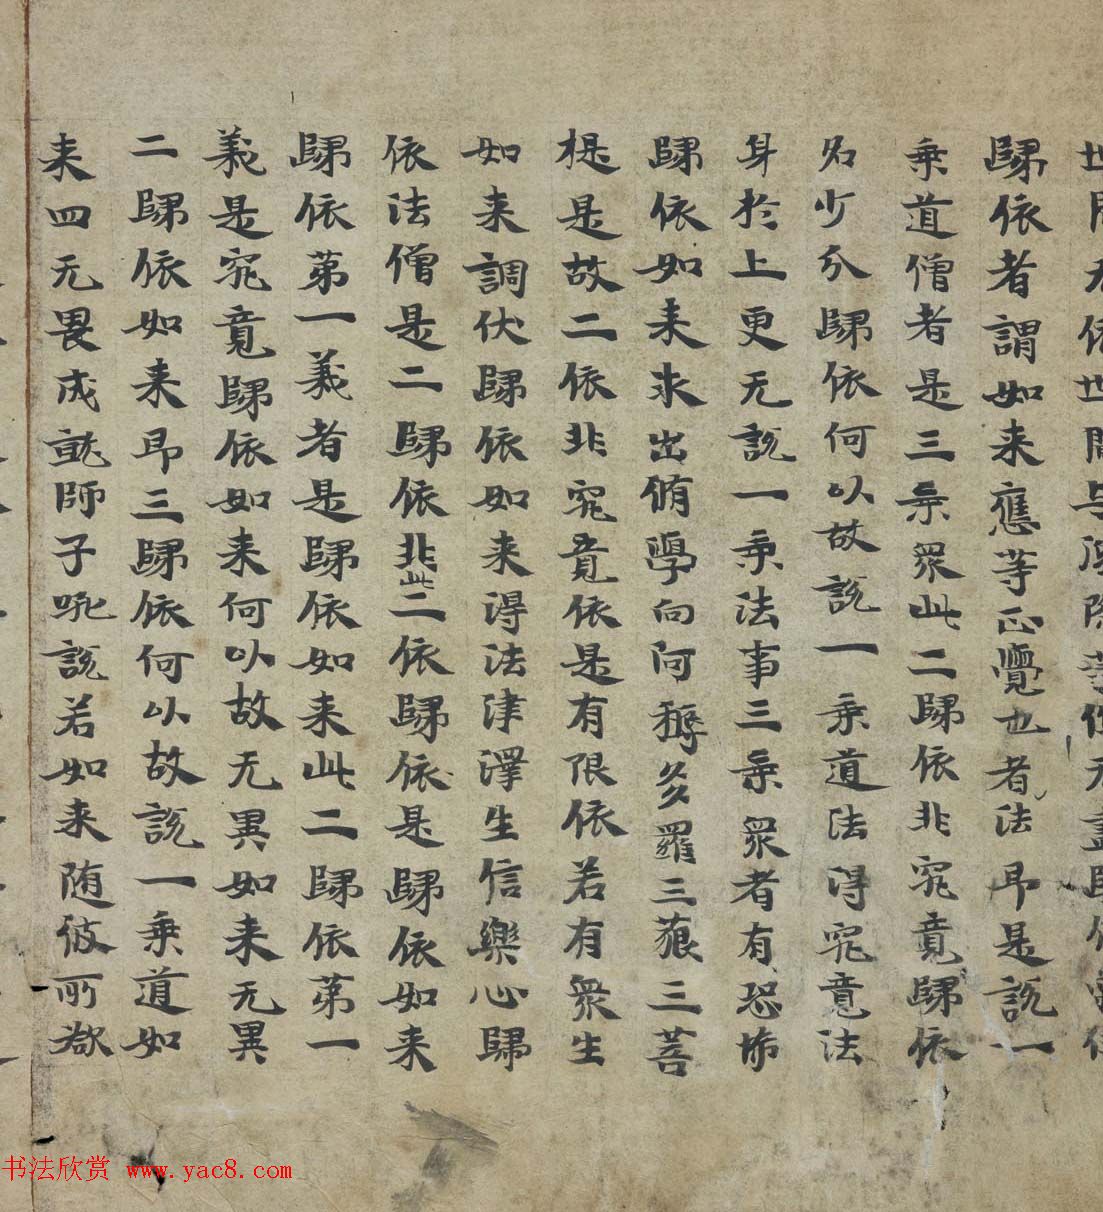 世間无依世世間与後際等作无盡歸依常住
歸依者謂如来應等正覺也者法即是說一
乘道僧者是三乘衆此二歸依非究竟歸依
名少分歸依何以故說一乘道法得究竟法
身於上更无說一乘法事三乘衆者有恐怖
歸依如来求出脩學向阿耨多羅三藐三菩
提是故二依非究竟依是有限依若有衆生
如来調伏歸依如来得法津澤生信樂心歸
依法僧是二歸依非此二依歸依是歸依如来
歸依第一義者是歸依如来此二歸依第一
義是究竟歸依如来何以故无異如来无異
二歸依如来即三歸依何以故說一乘道如
来四无畏成就師子吼說若如来随彼所欲
书法欣赏 www.yac8.com